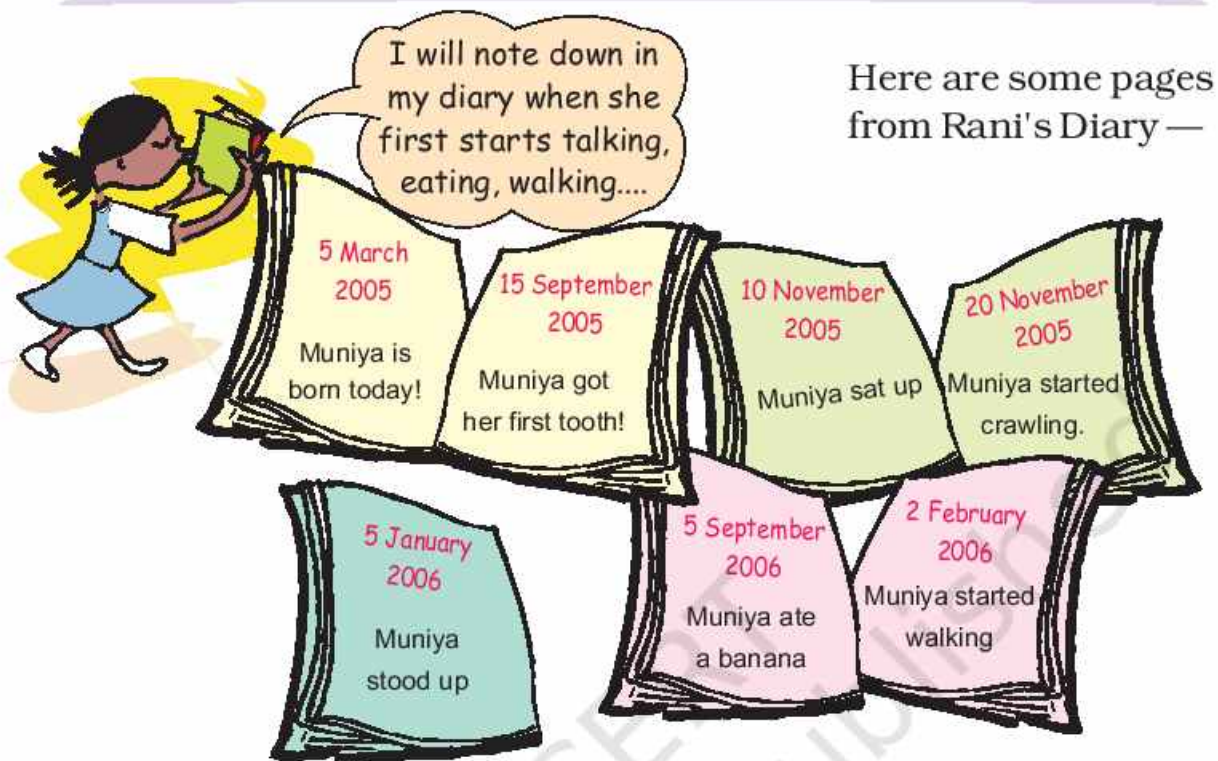 I will note down in
my diary when she
first starts talking,
eating, walking....
Here are some pages
from Rani's Diary —
5 March
2005
Muniya is
born today!
15 September
2005
Muniya got
her first tooth!
10 November
2005
Muniya sat up
20 November
2005
Muniya started
crawling.
5 January
2006
Muniya
stood up
5 September
2006
Muniya ate
a banana
2 February
2006
Muniya started
walking